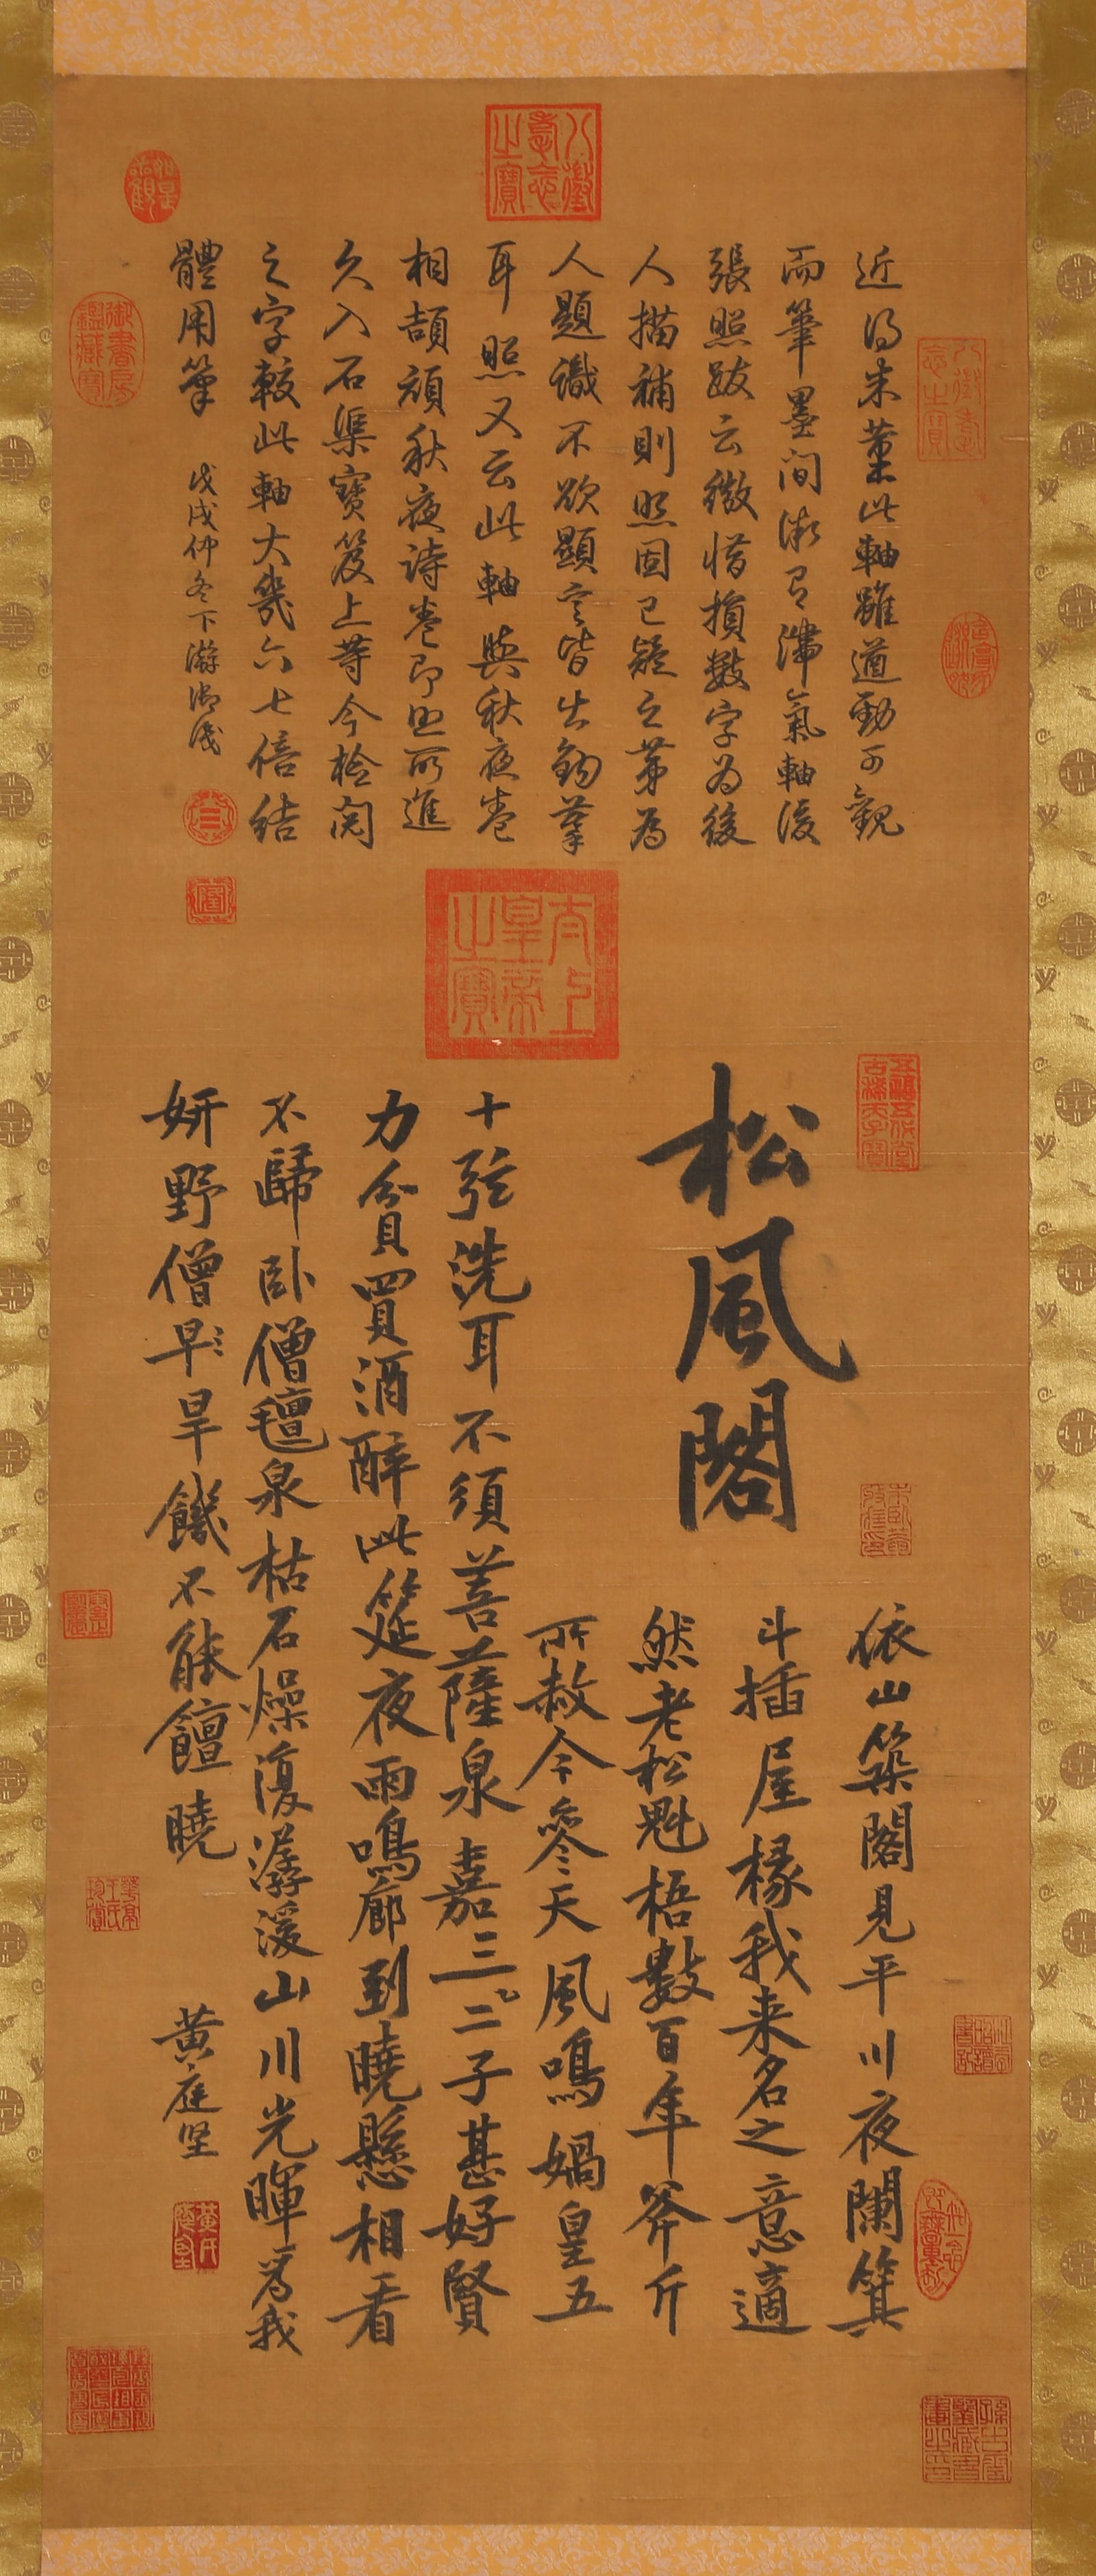 近得朱藁此軸雖遒勁可觀
而筆墨間微有滯氣軸後
張照跋云微惜損數字為後
人描補則照固已疑之第為
人題識不欲顯言皆出鈎摹
耳照又云此軸與秋夜卷
相頡頏秋夜詩卷即照所進
久入石渠寶笈上等今檢閱
之字較此軸大幾六七倍結
體用筆
戊戌仲冬下澣御識
太上皇帝之寶
八徵耄念之寶
八徵耄念之寶
御書房鑑藏寶
五福五代堂古稀天子寶
松風閣
依山築閣見平川夜闌箕
斗插屋椽我来名之意適
然老松魁梧數百年斧斤
所赦今參天風鳴媧皇五
十弦洗耳不須菩薩泉嘉三二子甚好賢
力貧買酒醉此筵夜雨鳴廊到曉懸相看
不歸卧僧氊泉枯石燥復潺湲山川光暉為我
妍野僧早旱饑不能饘曉
黃庭坚